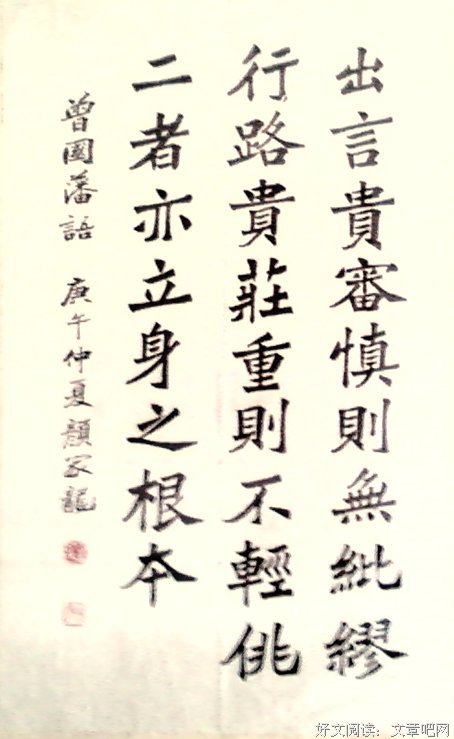 出言貴審慎則無紕繆
行路貴莊重則不輕佻
二者亦立身之根本
曾國藩語 庚午仲夏顏家龍
好文阅读：文章吧网